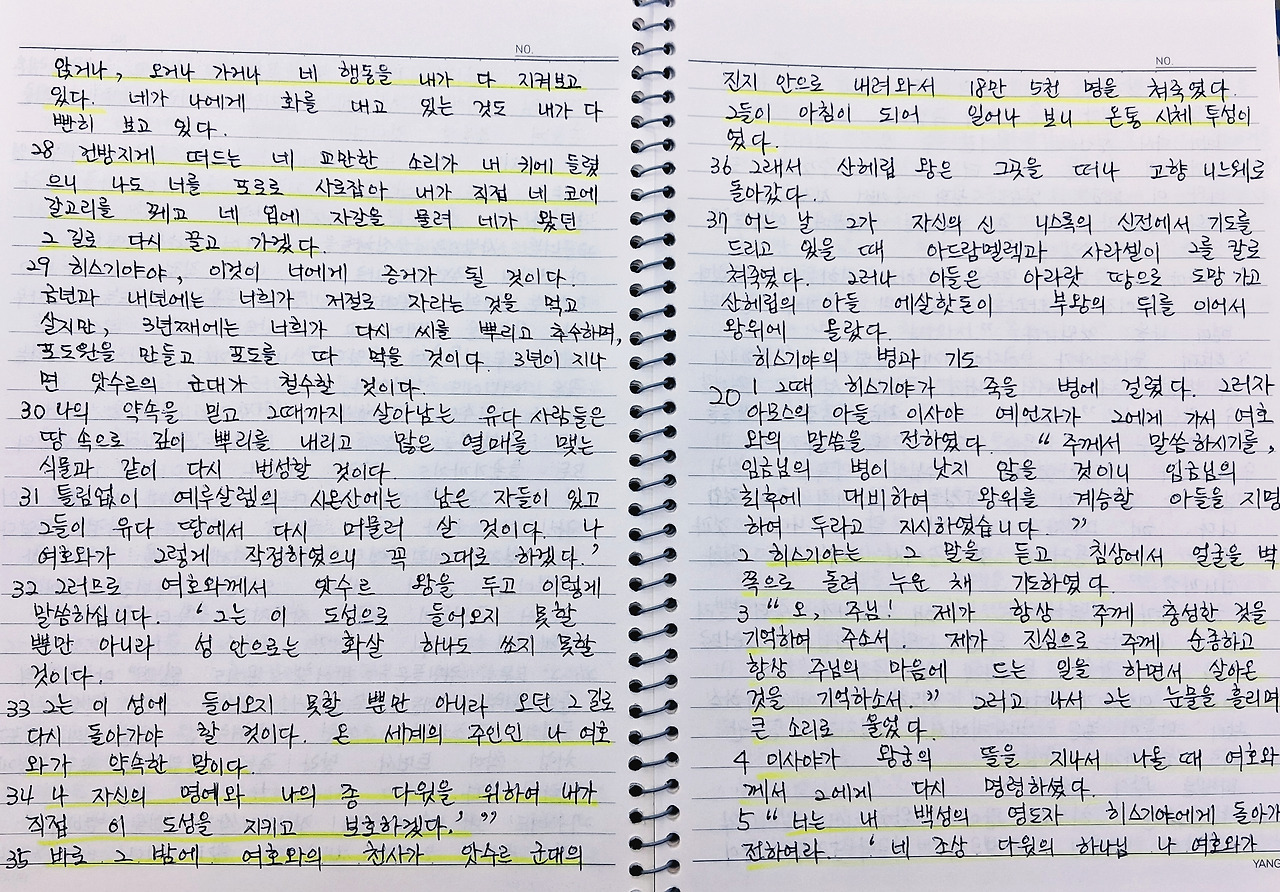 NO.
앉거나, 오거나 가거나 네 행동을 내가 다 지켜보고
있다. 네가 나에게 화를 내고 있는 것도 내가 다
빤히 보고 있다.
28 건방지게 떠드는 네 교만한 소리가 내 귀에 들렸
으니 나도 너를 포로로 사로잡아 내가 직접 네 코에
갈고리를 꿰고 네 입에 자갈을 물려 네가 왔던
그 길로 다시 끌고 가겠다.
29 히스기야야, 이것이 너에게 증거가 될 것이다.
금년과 내년에는 너희가 저절로 자라는 것을 먹고
살지만, 3년째에는 너희가 다시 씨를 뿌리고 추수하며,
포도원을 만들고 포도를 따 먹을 것이다. 3년이 지나
면 앗수르의 군대가 철수할 것이다.
30 나의 약속을 믿고 그때까지 살아남는 유다 사람들은
땅 속으로 깊이 뿌리를 내리고 많은 열매를 맺는
식물과 같이 다시 번성할 것이다.
31 틀림없이 예루살렘의 시온산에는 남은 자들이 있고
그들이 유다 땅에서 다시 머물러 살 것이다. 나
여호와가 그렇게 작정하였으니 꼭 그대로 하겠다.'
32 그러므로 여호와께서 앗수르 왕을 두고 이렇게
말씀하십니다. '그는 이 도성으로 들어오지 못할
뿐만 아니라 성 안으로는 화살 하나도 쏘지 못할
것이다.
33 그는 이 성에 들어오지 못할 뿐만 아니라 오던 그 길로
다시 돌아가야 할 것이다. 온 세계의 주인인 나 여호
와가 약속한 말이다.
34 나 자신의 명예와 나의 종 다윗을 위하여 내가
직접 이 도성을 지키고 보호하겠다.' "
35 바로 그 밤에 여호와의 천사가 앗수르 군대의
NO.
진지 안으로 내려와서 18만 5천 명을 쳐죽였다.
그들이 아침이 되어 일어나 보니 온통 시체 투성이
였다.
36 그래서 산헤립 왕은 그곳을 떠나 고향 니느웨로
돌아갔다.
37 어느 날 그가 자신의 신 니스록의 신전에서 기도를
드리고 있을 때 아드람멜렉과 사라셀이 그를 칼로
쳐죽였다. 그러나 이들은 아라랏 땅으로 도망 가고
산헤립의 아들 에살핫돈이 부왕의 뒤를 이어서
왕위에 올랐다.
히스기야의 병과 기도
20 1 그때 히스기야가 죽을 병에 걸렸다. 그러자
아모스의 아들 이사야 예언자가 그에게 가서 여호
와의 말씀을 전하였다. "주께서 말씀하시기를,
임금님의 병이 낫지 않을 것이니 임금님의
최후에 대비하여 왕위를 계승할 아들을 지명
하여 두라고 지시하였습니다."
2 히스기야는 그 말을 듣고 침상에서 얼굴을 벽
쪽으로 돌려 누운 채 기도하였다.
3 "오, 주님! 제가 항상 주께 충성한 것을
기억하여 주소서. 제가 진심으로 주께 순종하고
항상 주님의 마음에 드는 일을 하면서 살아온
것을 기억하소서." 그러고 나서 그는 눈물을 흘리며
큰 소리로 울었다.
4 이사야가 왕궁의 뜰을 지나서 나올 때 여호와
께서 그에게 다시 명령하셨다.
5 "너는 내 백성의 영도자 히스기야에게 돌아가
전하여라. '네 조상 다윗의 하나님 나 여호와가
YANG